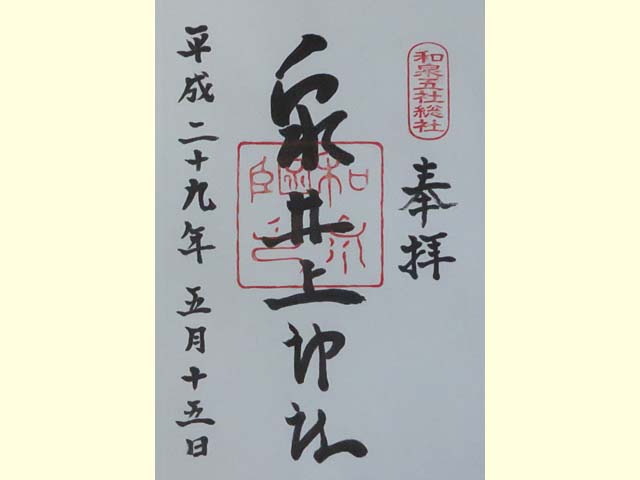 和泉五社総社
奉拝
泉井上神社
平成二十九年五月十五日